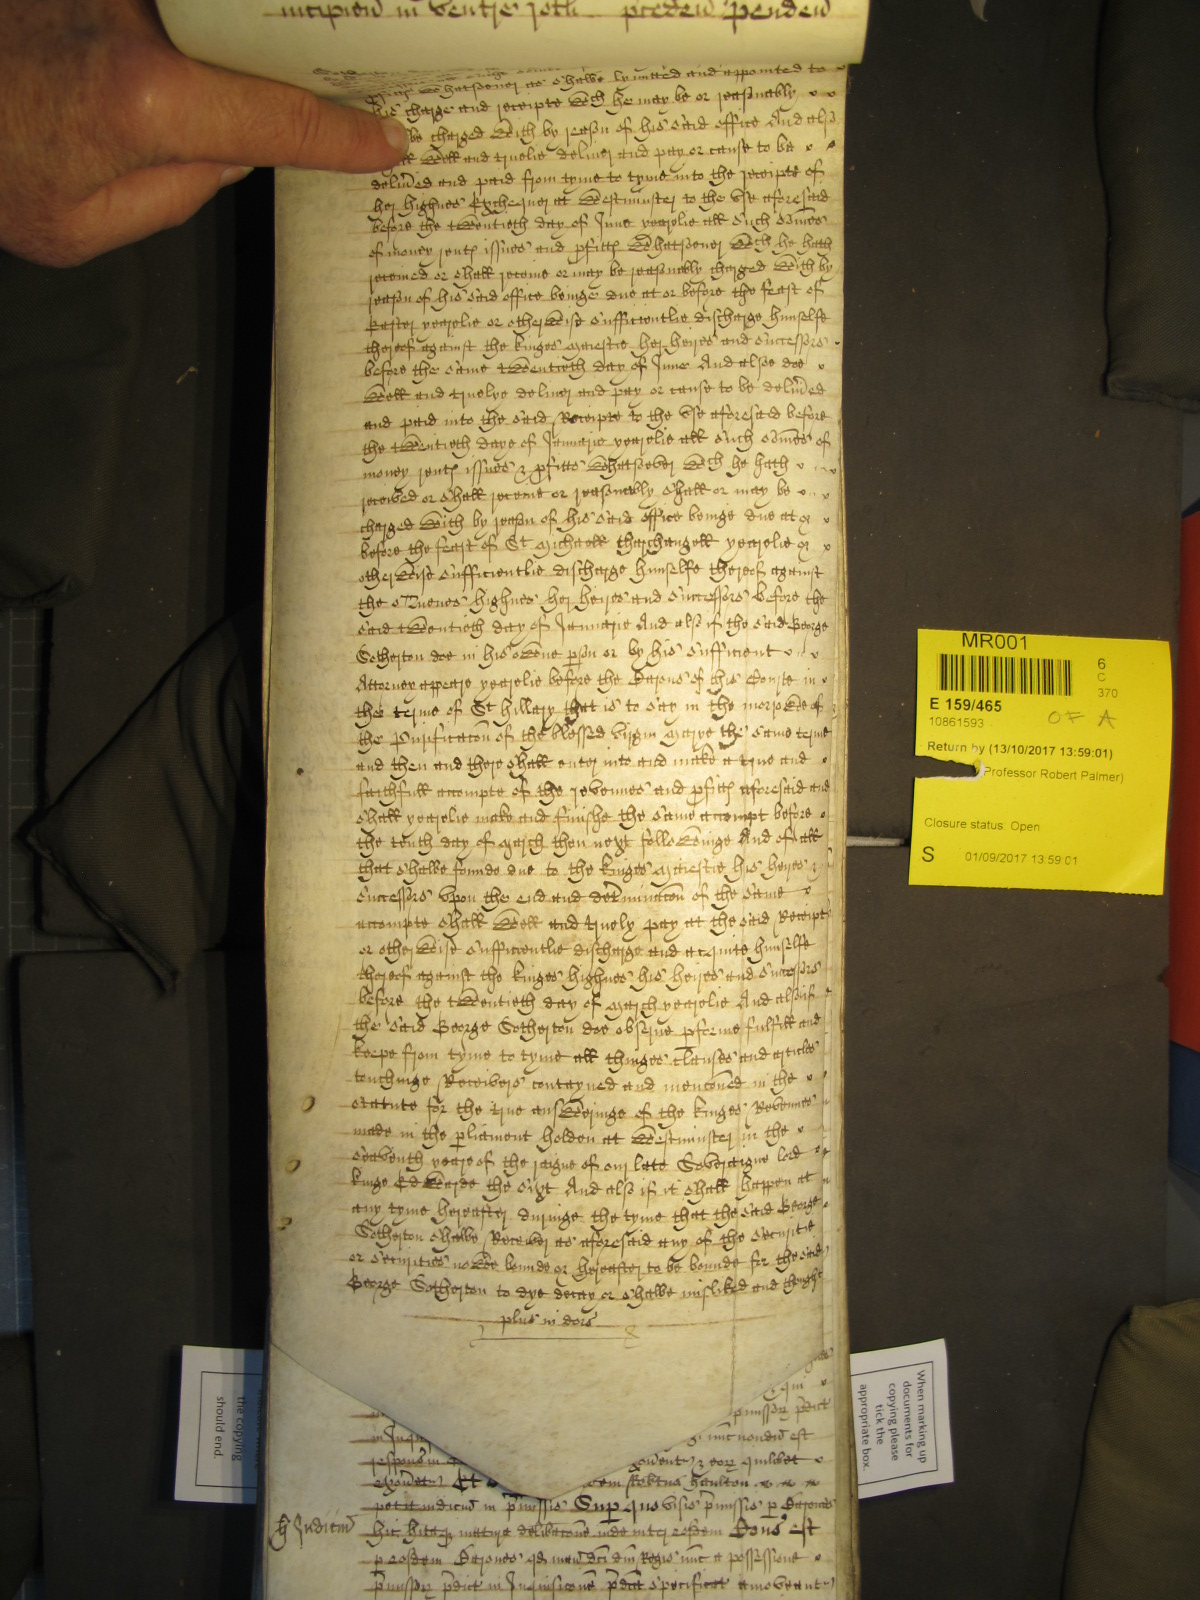 incipien in ventre rotli precden penden
whatsoever as shalbe lymited and appointed to
his charge and receipte wch he may be or reasonably
be charged with by reason of his said office And also
well and truelie deliver and pay or cause to be
delived and paid from tyme to tyme into the receipte of
her highnes Exchequer at Westminster to the vse aforesaid
before the twentieth day of June yearelie all such somes
of money rents issues and pfitts whatsoever wch he hath
received or shall receive or may be reasonably charged with by
reason of his said office beinge due at or before the feast of
Easter yearelie or otherwise sufficientlie discharge himselfe
thereof against the kinges maiestie her heires and successors
before the same twentieth day of June And alsoe doe
well and truelye deliver and pay or cause to be delived
and paid into the said Receipte to the vse aforesaid before
the twentieth daye of Januarie yearelie all such somes of
money rents issues & pfitts whatsoever wch he hath
received or shall receive or reasonably shall or may be
charged with by reason of his said office beinge due at or
before the feast of St Michaell tharchangell yearelie or
otherwise sufficientlie discharge himselfe thereof against
the Quenes highnes her heires and successors before the
said twentieth day of Januarie And also if the said George
Sotherton doe in his owne pson or by his sufficient
Attorney appeare yearelie before the Barons of this Courte in
the terme of St Hillary that is to say in the morrowe of
the Purificaton of the blessed virgin Marye the same terme
and then and there shall enter into and make a true and
faithfull accompte of the revennes and pfitts aforesaid and
shall yearelie make and finishe the same accompt before
the tenth day of March then next followinge And of all
that shalbe founde due to the kinges maiestie his heires &
successors vpon the end and determinaton of the same
accompte shall well and truely pay at the said Receipte
or otherwise sufficientlie discharge and acquite himselfe
thereof against the kinges highnes his heires and successors
before the twentieth day of March yearelie And also if
the said George Sotherton doe observe pforme fulfill and
keepe from tyme to tyme all thinges clauses and articles
touchinge Receivers contayned and menconed in the
statute for the true answeringe of the kinges Revennes
made in the pliament holden at Westminster in the
seaventh yeare of the raigne of our late Soveraigne lord
kinge Edwarde the sixt And also if it shall happen at
any tyme hereafter duringe the tyme that the said George
Sotherton shalbe Receiver as aforesaid any of the securitie
or securities nowe bounde or hereafter to be bounde for the said
George Sotherton to dye decay or shalbe misliked and thought
plus in dors
nunc nondu est
quilibet
petit iudiciu in pmissis Sup quo visis pmissis p Barones
Judiciu
hic hitaq matura delibacone inde inter eosdem Cons est
p eosdem Barones qd man dci dni Regis nunc a possessione
pmissor pdict in Inquisicone pdict specificat amoveant
MR001
6
C
370
E 159/465
10861593
OF A
Return by (13/10/2017 13:59:01)
Professor Robert Palmer)
Closure status Open
S 01/09/2017 13:59:01
the copying
should end.
When marking up
documents for
copying please
tick the
appropriate box.